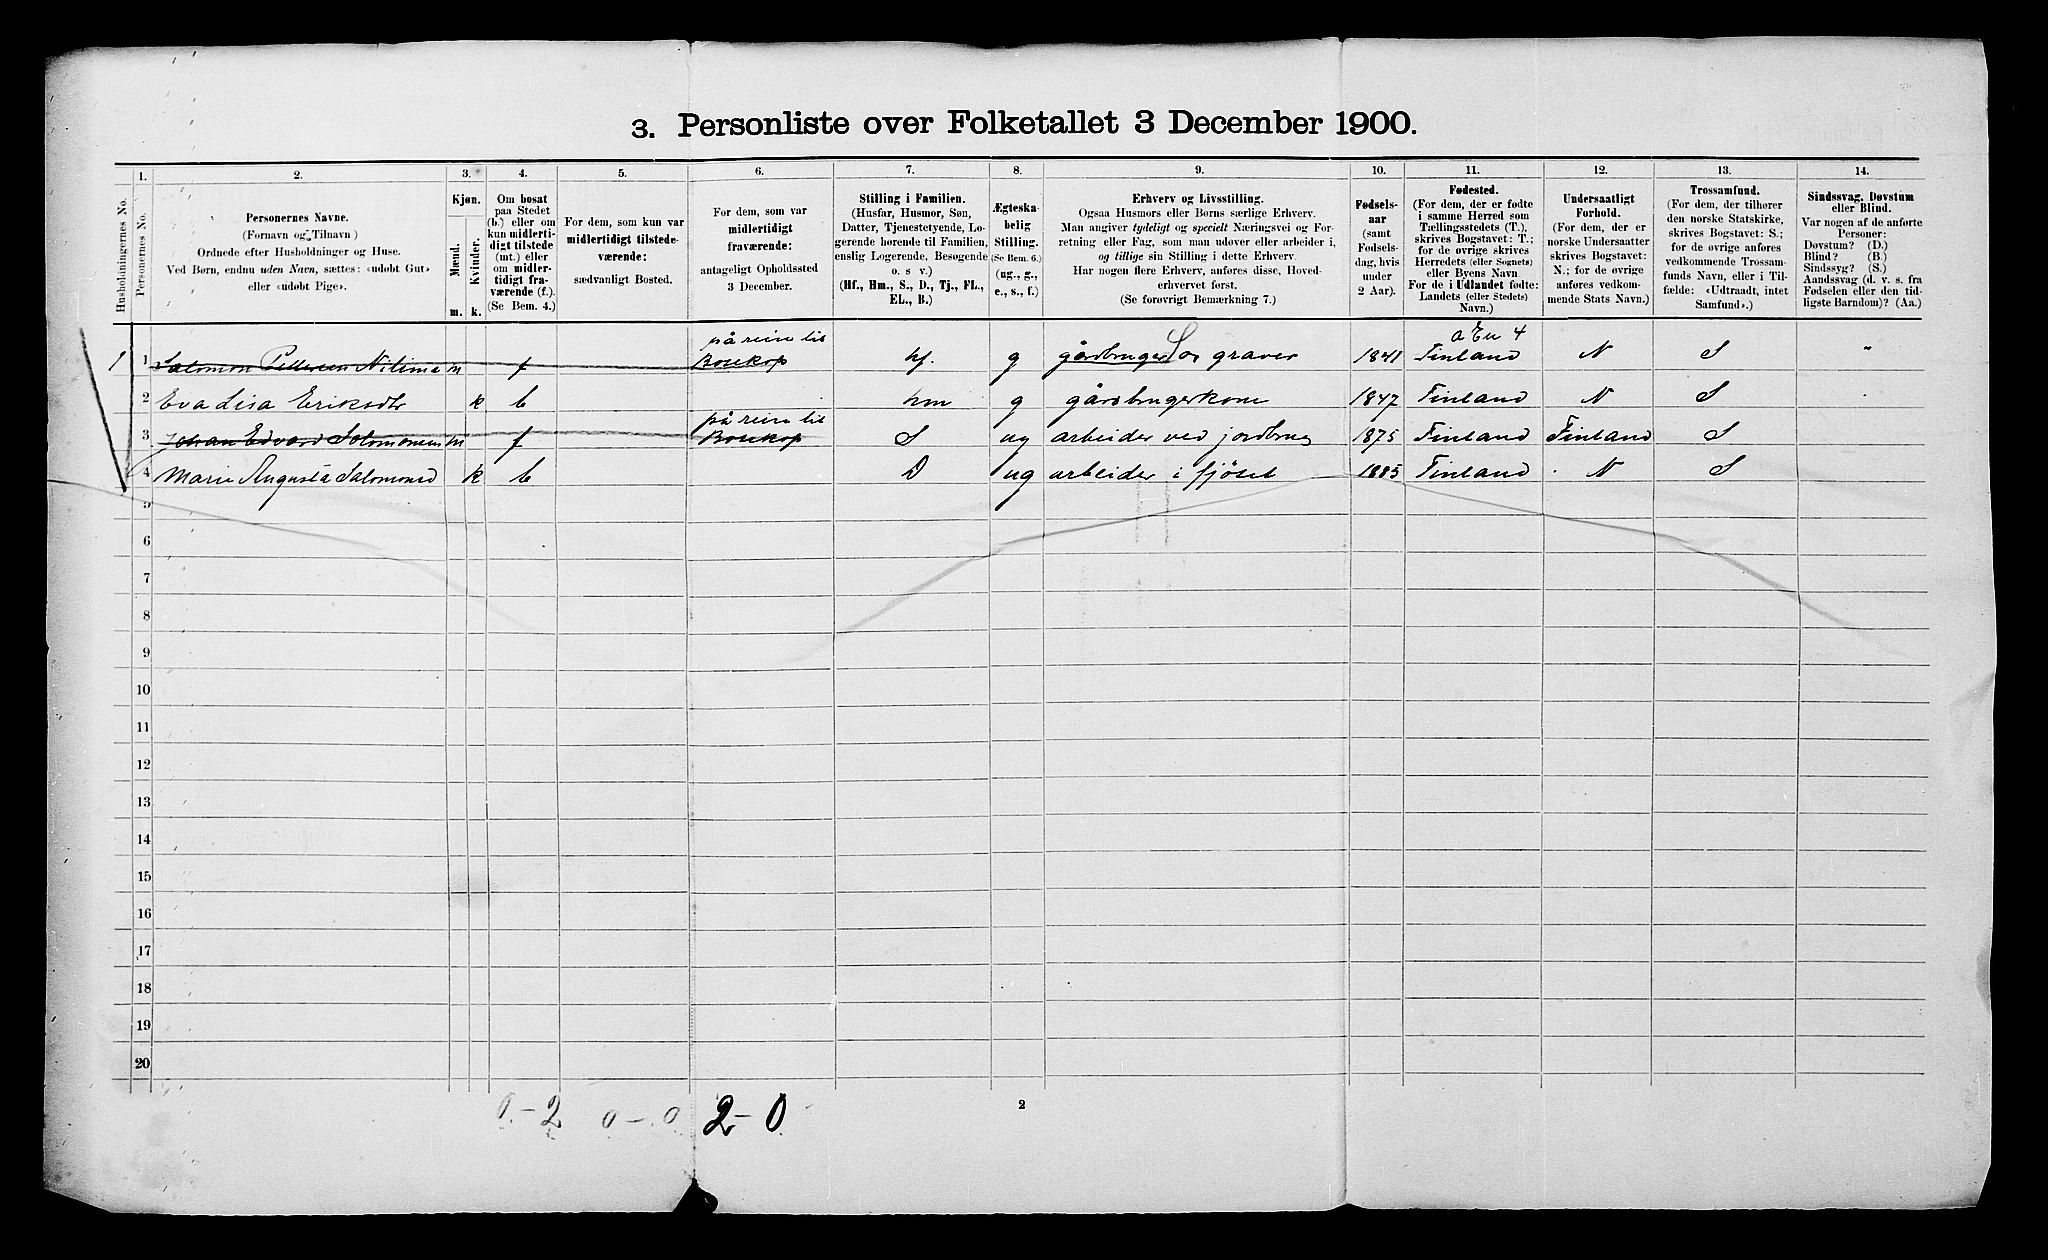 3. Personliste over Folketallet 3 December 1900.
Husholdningernes No.
1.
Personernes No.
2.
Personernes Navne.
(Fornavn og Tilnavn)
Ordnede efter Husholdninger og Huse.
Ved Børn, endnu uden Navn, sættes: «udøbt Gut»
eller «udøbt Pige».
3.
Kjøn.
Mænd.
Kvinder.
m. k.
4.
Om bosat
paa Stedet
(b.) eller om
kun midlerti-
digt tilstede
(mt.) eller
om midler-
tidigt fra-
værende (f.)
(Se Bem. 4.)
5.
For dem, som kun var
midlertidigt tilstede-
værende:
sædvanligt Bosted.
6.
For dem, som var
midlertidigt
fraværende:
antageligt Opholdssted
3 December.
7.
Stilling i Familien.
(Husfar, Husmor, Søn,
Datter, Tjenestetyende, Lo-
gerende hørende til Familien,
enslig Logerende, Besøgende
o. s v.)
(Hf., Hm., S., D., Tj., FL.,
EL., B.)
8.
Ægteska-
belig
Stilling.
(Se Bem. 6.)
(ug., g.,
e., s., f.)
9.
Erhverv og Livsstilling.
Ogsaa Husmors eller Børns særlige Erhverv.
Man angiver tydeligt og specielt Næringsvei og For-
retning eller Fag, som man udøver eller arbeider i,
og tillige sin Stilling i dette Erhverv.
Har nogen flere Erhverv, anføres disse, Hoved-
erhvervet først.
(Se forøvrigt Bemærkning 7.)
10.
Fødsels-
aar
(samt
Fødsels-
dag, hvis
under
2 Aar).
11.
Fødested.
(For dem, der er fødte
i samme Herred som
Tællingsstedets (T.),
skrives Bogstavet: T.;
for de øvrige skrives
Herredets (eller Sognets)
eller Byens Navn
For de i Udlandet fødte:
Landets (eller Stedets)
Navn.)
12.
Undersaatligt
Forhold.
(For dem, der er
norske Undersaatter
skrives Bogstavet:
N.; for de øvrige
anføres vedkom-
mende Stats Navn.)
13.
Trossamfund.
(For dem, der tilhører
den norske Statskirke,
skrives Bogstavet: S.;
for de øvrige anføres
vedkommende Trossam-
funds Navn, eller i Til-
fælde: «Udtraadt, intet
Samfund».)
14.
Sindssvag, Døvstum
eller Blind.
Var nogen af de anførte
Personer:
Døvstum? (D.)
Blind? (B.)
Sindssyg? (S.)
Aandssvag (d. v. s. fra
Fødselen eller den tid-
ligste Barndom)? (Aa.)
1 1 Salomon m f på reise til Bosekop hf. g gårdbruger graver 1841 Finland N S "
2 Eva Lisa Eriksdtr k b hm g gårdbrugerkone 1847 Finland N S
3 Johan Edvard Salomonsen m f på reise til Bosekop S ug arbeider ved jordbrug 1875 Finland Finland S
4 Marie Augusta Salomonsd k b D ug arbeider i fjöset 1885 Finland N S
5
6
7
8
9
10
11
12
13
14
15
16
17
18
19
20
0-2 0-0 2-0
2